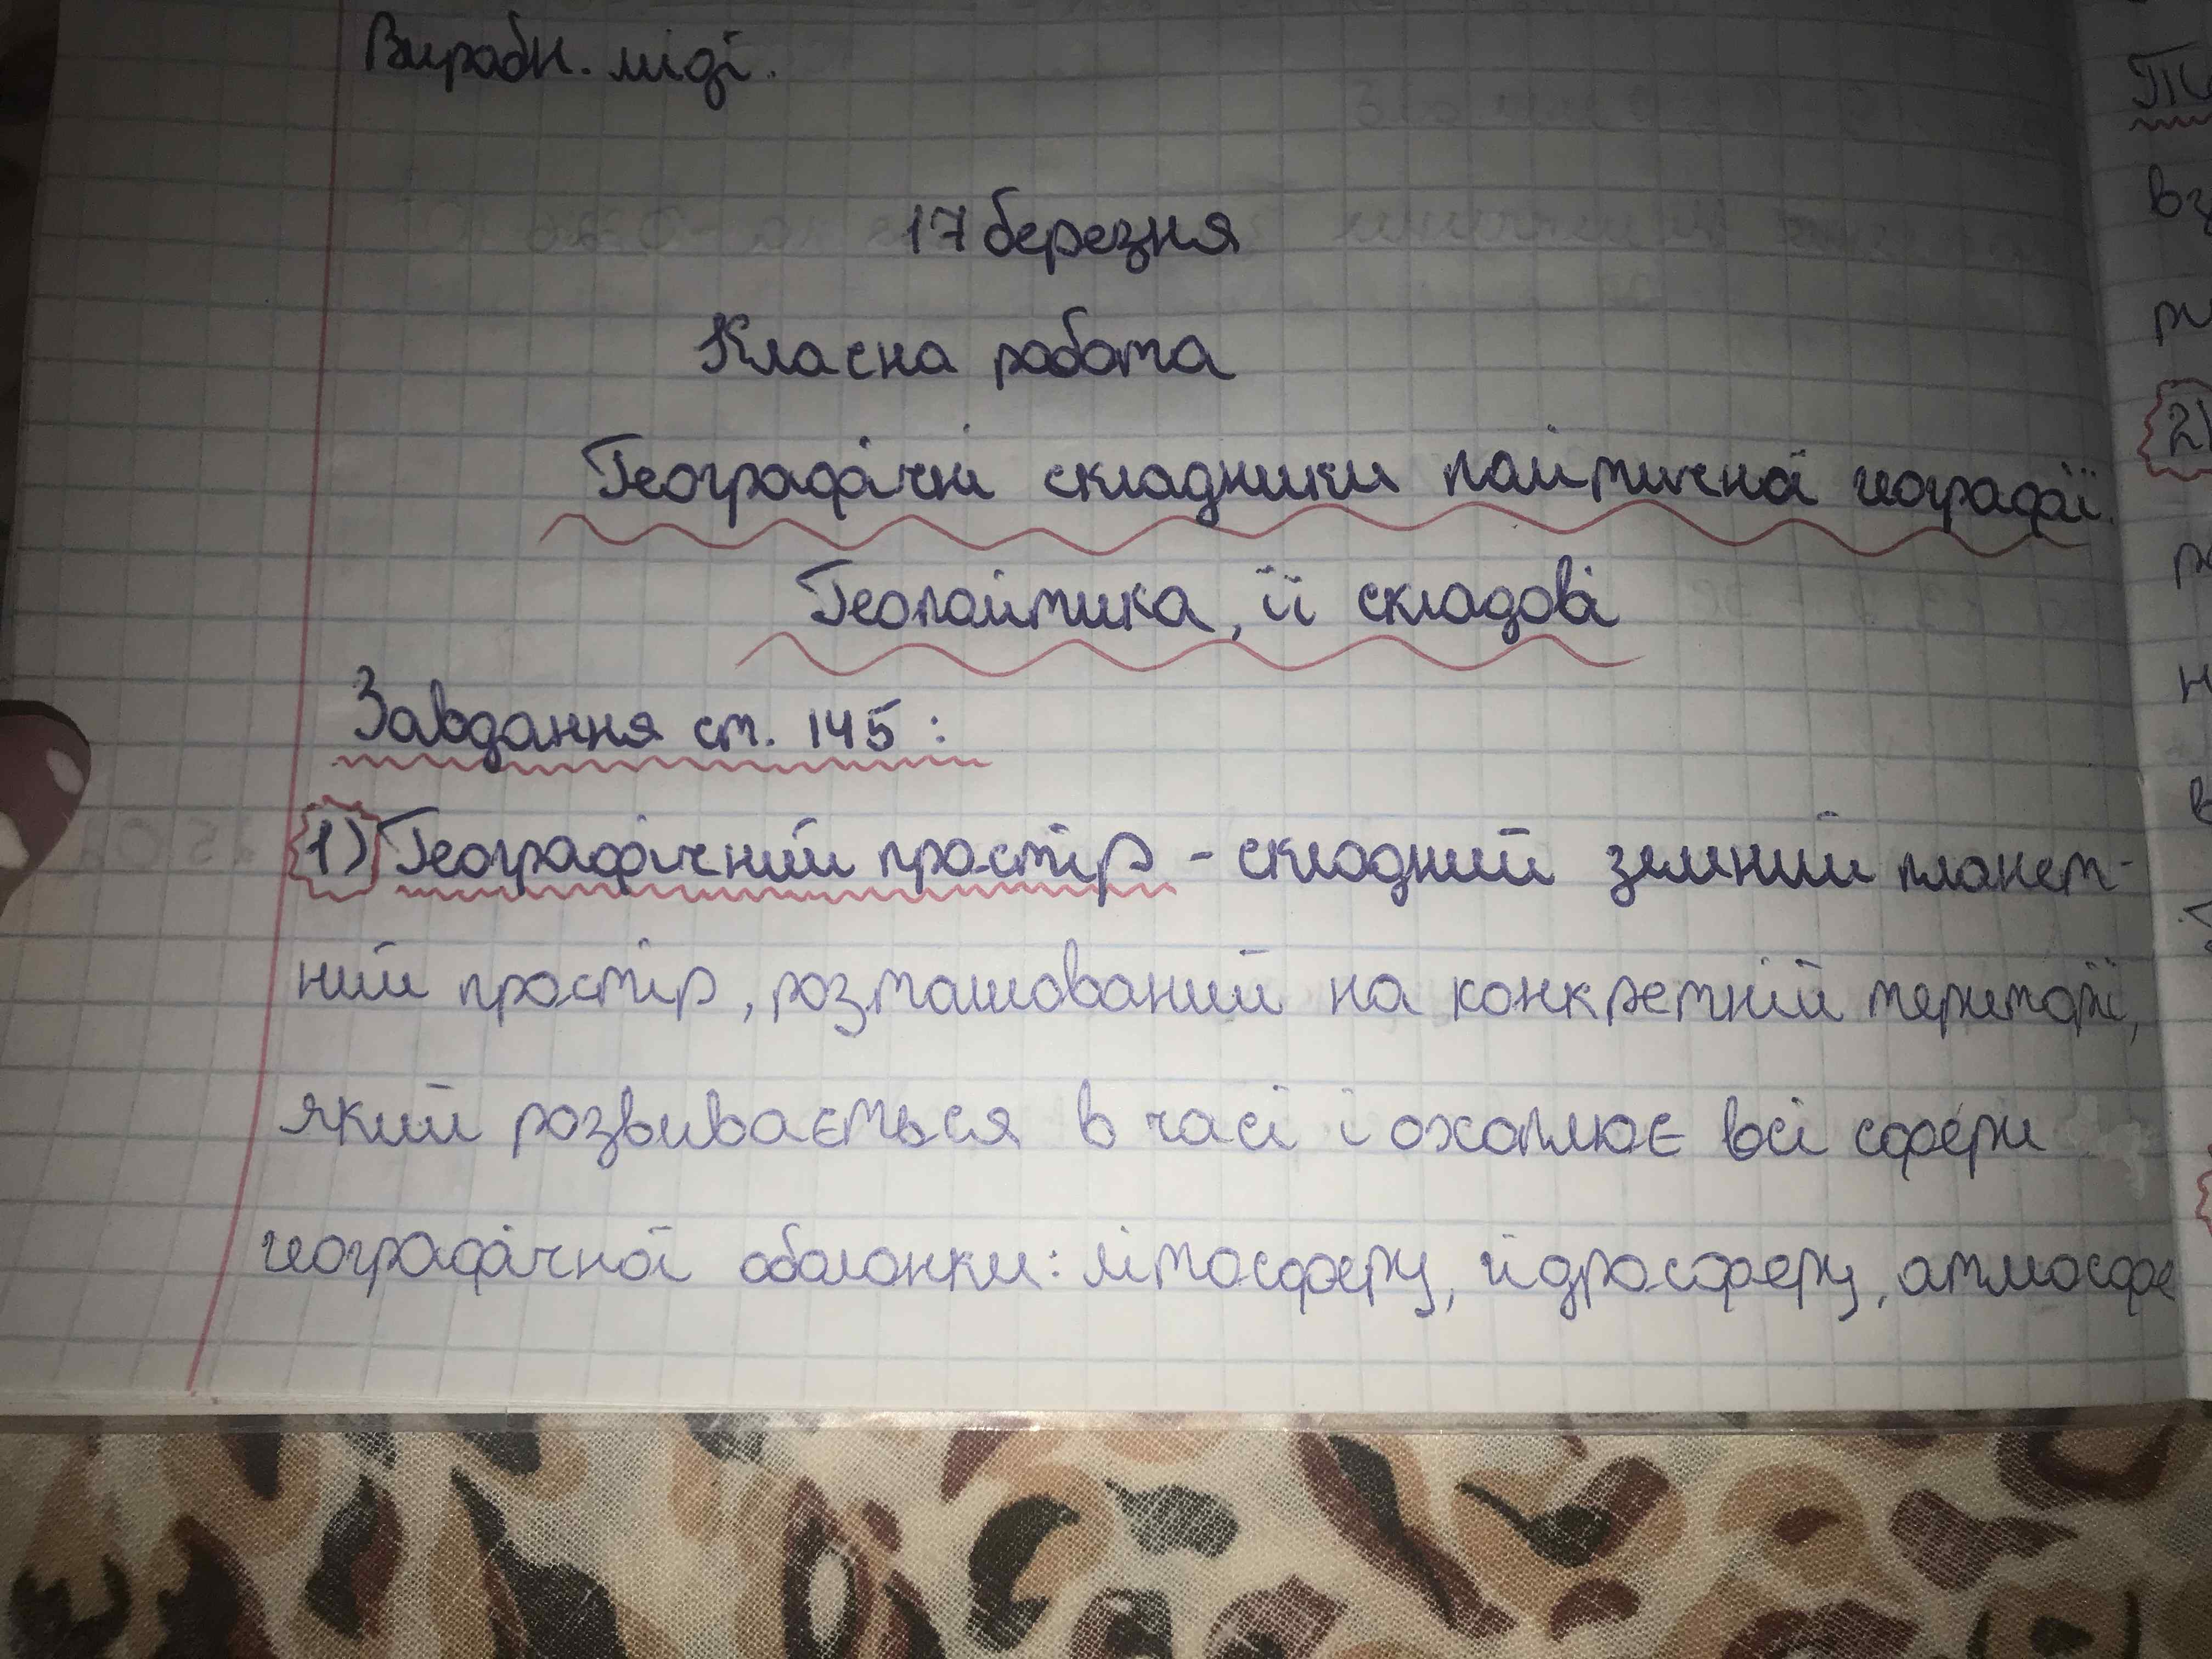 Виробн. міді.
17 березня
Класна робота
Географічні складники політичної географії.
Геополітика, її складові
Завдання ст. 145:
1) Географічний простір - складний земний планет-
ний простір, розташований на конкретній території,
який розвивається в часі і охоплює всі сфери
географічної оболонки: літосферу, гідросферу, атмосфе
2)